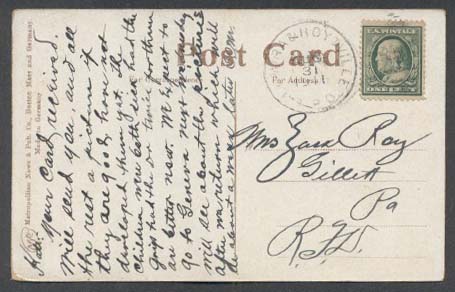 Post Card
For Correspondence
For Address Only
Metropolitan News & Pub. Co., Boston Mass and Germany.
Made in Germany
U.S. POSTAGE
ONE CENT
31
Your card received.
Will send you, and all
the rest a picture if
they are good, have not
developed them yet. The
children were both sick, had the
grip, had the Dr twice Worthin
are better now. We expect to
go to Geneva next Monday
will see about the pictures
after we return which will
be about a week later
Mrs Zara Ray
Gillett
Pa
R.F.D.